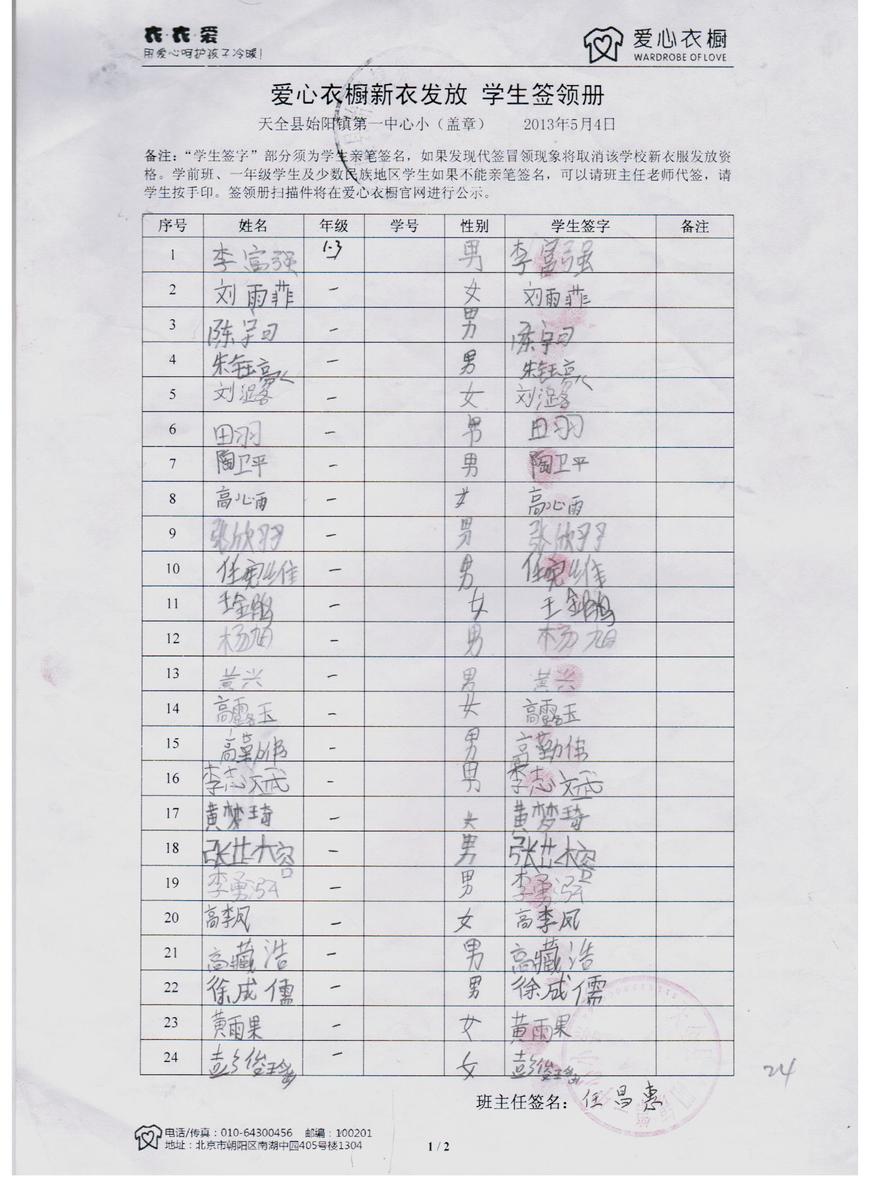 衣·衣·爱
用爱心呵护孩子冷暖!
爱心衣橱
WARDROBE OF LOVE
爱心衣橱新衣发放 学生签领册
天全县始阳镇第一中心小（盖章） 2013年5月4日
备注：“学生签字”部分须为学生亲笔签名，如果发现代签冒领现象将取消该学校新衣服发放资
格。学前班、一年级学生及少数民族地区学生如果不能亲笔签名，可以请班主任老师代签，请
学生按手印。签领册扫描件将在爱心衣橱官网进行公示。
序号 姓名 年级 学号 性别 学生签字 备注
1 李富强 1.3 男 李富强
2 刘雨菲 一 女 刘雨菲
3 一 男
4 一 男
5 一 女
6 田羽 一 男 田羽
7 陶卫平 一 男 陶卫平
8 高心雨 一 女 高心雨
9 张欣羽 一 男 张欣羽
10 一 男
11 一 女
12 杨旭 一 男 杨旭
13 黄兴 一 男 黄兴
14 高露玉 一 女 高露玉
15 高勤伟 一 男 高勤伟
16 李志斌 一 男 李志斌
17 黄梦琦 一 女 黄梦琦
18 一 男
19 李勇强 一 男 李勇强
20 高李凤 一 女 高李凤
21 高藏浩 一 男 高藏浩
22 徐成儒 一 男 徐成儒
23 黄雨果 一 女 黄雨果
24 一 女
24
班主任签名： 任昌惠
电话/传真：010-64300456 邮编：100201
地址：北京市朝阳区南湖中园405号楼1304
1 / 2